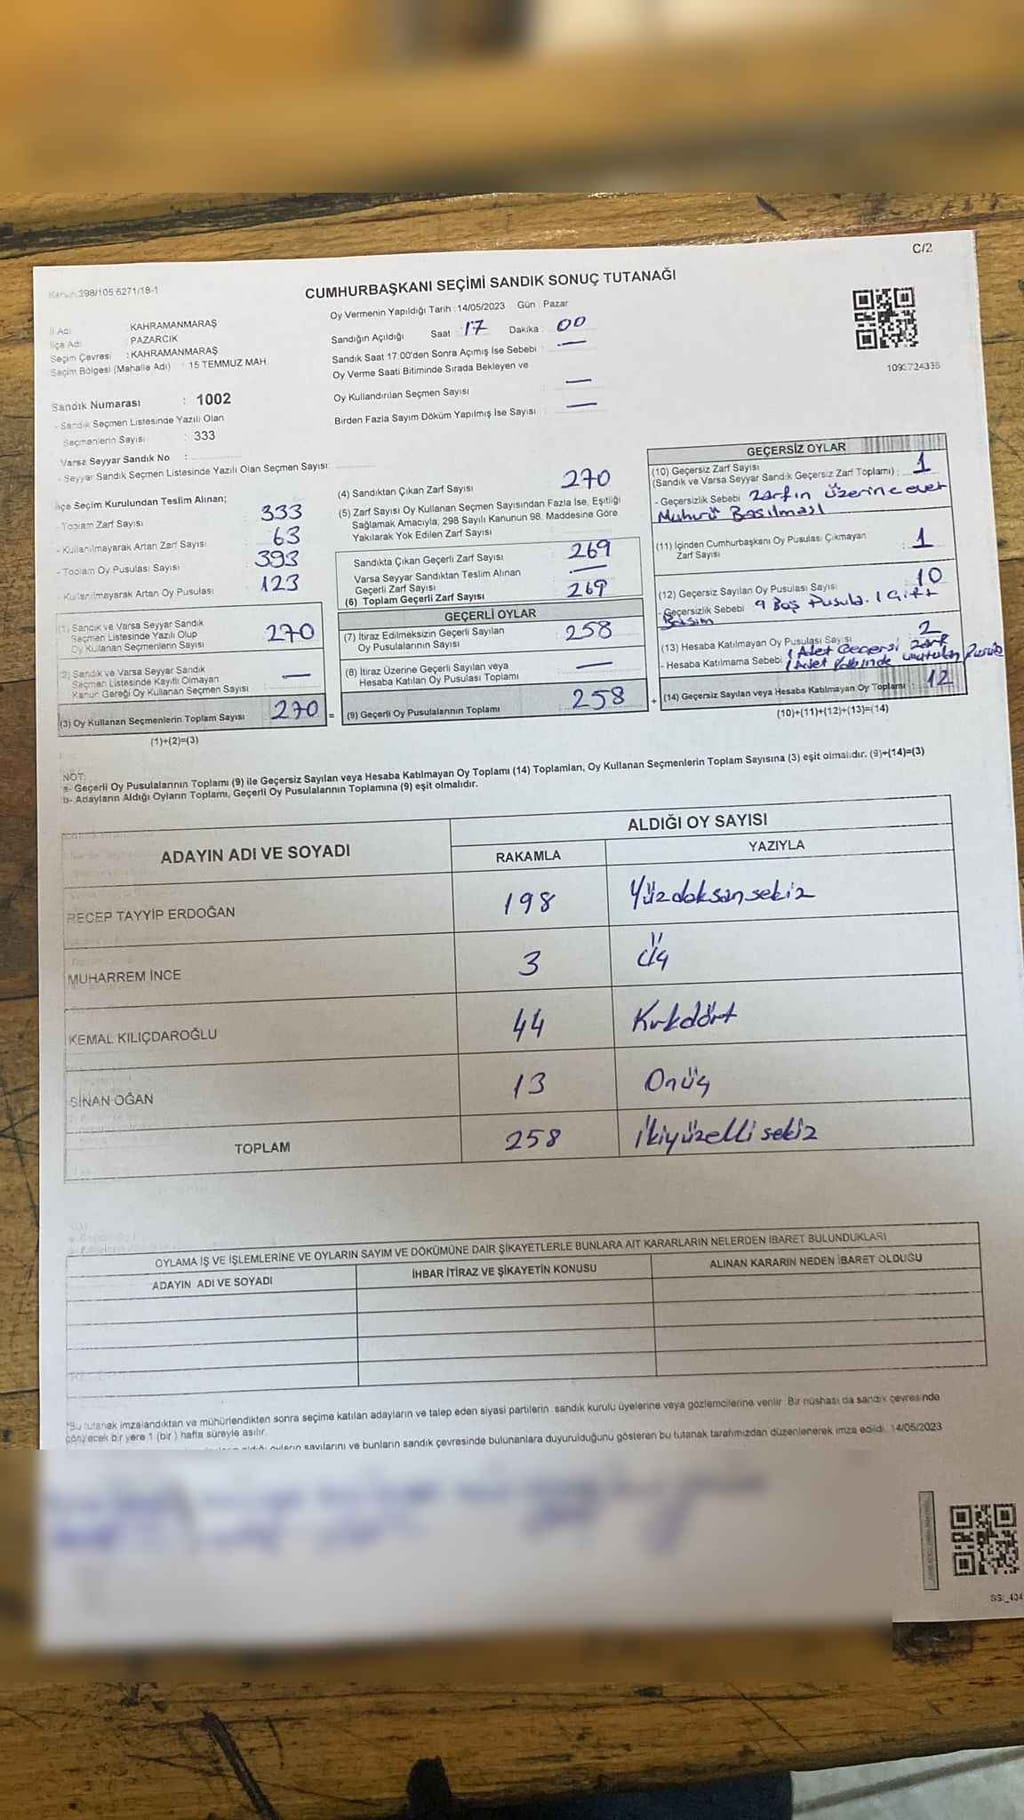 C/2
Kanun:298/105 6271/18-1
CUMHURBAŞKANI SEÇİMİ SANDIK SONUÇ TUTANAĞI
İl Adı : KAHRAMANMARAŞ
İlçe Adı : PAZARCIK
Seçim Çevresi : KAHRAMANMARAŞ
Seçim Bölgesi (Mahalle Adı) : 15 TEMMUZ MAH.
Sandık Numarası : 1002
- Sandık Seçmen Listesinde Yazılı Olan
Seçmenlerin Sayısı : 333
Varsa Seyyar Sandık No :
- Seyyar Sandık Seçmen Listesinde Yazılı Olan Seçmen Sayısı:
Oy Vermenin Yapıldığı Tarih : 14/05/2023 Gün : Pazar
Sandığın Açıldığı Saat : 17 Dakika : 00
Sandık Saat 17.00'den Sonra Açımış İse Sebebi : —
Oy Verme Saati Bitiminde Sırada Bekleyen ve
Oy Kullandırılan Seçmen Sayısı —
Birden Fazla Sayım Döküm Yapılmış İse Sayısı : —
İlçe Seçim Kurulundan Teslim Alınan;
- Toplam Zarf Sayısı 333
- Kullanılmayarak Artan Zarf Sayısı 63
- Toplam Oy Pusulası Sayısı 393
- Kullanılmayarak Artan Oy Pusulası 123
(1) Sandık ve Varsa Seyyar Sandık
Seçmen Listesinde Yazılı Olup
Oy Kullanan Seçmenlerin Sayısı 270
(2) Sandık ve Varsa Seyyar Sandık
Seçmen Listesinde Kayıtlı Olmayan
Kanun Gereği Oy Kullanan Seçmen Sayısı —
(3) Oy Kullanan Seçmenlerin Toplam Sayısı 270 =
(1)+(2)=(3)
(4) Sandıktan Çıkan Zarf Sayısı 270
(5) Zarf Sayısı Oy Kullanan Seçmen Sayısından Fazla İse, Eşitliği
Sağlamak Amacıyla, 298 Sayılı Kanunun 98. Maddesine Göre
Yakılarak Yok Edilen Zarf Sayısı
Sandıkta Çıkan Geçerli Zarf Sayısı 269
Varsa Seyyar Sandıktan Teslim Alınan
Geçerli Zarf Sayısı —
(6) Toplam Geçerli Zarf Sayısı 269
GEÇERLİ OYLAR
(7) İtiraz Edilmeksizin Geçerli Sayılan
Oy Pusulalarının Sayısı 258
(8) İtiraz Üzerine Geçerli Sayılan veya
Hesaba Katılan Oy Pusulası Toplamı —
(9) Geçerli Oy Pusulalarının Toplamı 258 +
GEÇERSİZ OYLAR
(10) Geçersiz Zarf Sayısı
(Sandık ve Varsa Seyyar Sandık Geçersiz Zarf Toplamı) : 1
- Geçersizlik Sebebi Zarfın üzerine evet
Muhurü Basılması
(11) İçinden Cumhurbaşkanı Oy Pusulası Çıkmayan
Zarf Sayısı : 1
(12) Geçersiz Sayılan Oy Pusulası Sayısı : 10
- Geçersizlik Sebebi 9 Boş Pusula. 1 Çift
Basım
(13) Hesaba Katılmayan Oy Pusulası Sayısı 2
- Hesaba Katılmama Sebebi 1 Adet Geçersiz Zarf
1 Adet unutulan
(14) Geçersiz Sayılan veya Hesaba Katılmayan Oy Toplamı : 12
(10)+(11)+(12)+(13)=(14)
NOT:
a- Geçerli Oy Pusulalarının Toplamı (9) ile Geçersiz Sayılan veya Hesaba Katılmayan Oy Toplamı (14) Toplamları, Oy Kullanan Seçmenlerin Toplam Sayısına (3) eşit olmalıdır. (9)+(14)=(3)
b- Adayların Aldığı Oyların Toplamı, Geçerli Oy Pusulalarının Toplamına (9) eşit olmalıdır.
ADAYIN ADI VE SOYADI ALDIĞI OY SAYISI
RAKAMLA YAZIYLA
RECEP TAYYİP ERDOĞAN 198 Yüzdoksansekiz
MUHARREM İNCE 3 Üç
KEMAL KILIÇDAROĞLU 44 Kırkdört
SİNAN OĞAN 13 Onüç
TOPLAM 258 İkiyüzellisekiz
OYLAMA İŞ VE İŞLEMLERİNE VE OYLARIN SAYIM VE DÖKÜMÜNE DAİR ŞİKAYETLERLE BUNLARA AİT KARARLARIN NELERDEN İBARET BULUNDUKLARI
ADAYIN ADI VE SOYADI İHBAR İTİRAZ VE ŞİKAYETİN KONUSU ALINAN KARARIN NEDEN İBARET OLDUĞU
*Bu tutanak imzalandıktan ve mühürlendikten sonra seçime katılan adayların ve talep eden siyasi partilerin sandık kurulu üyelerine veya gözlemcilerine verilir. Bir nüshası da sandık çevresinde
görülecek bir yere 1 (bir) hafta süreyle asılır.
oyların sayılarını ve bunların sandık çevresinde bulunanlara duyurulduğunu gösteren bu tutanak tarafımızdan düzenlenerek imza edildi. 14/05/2023